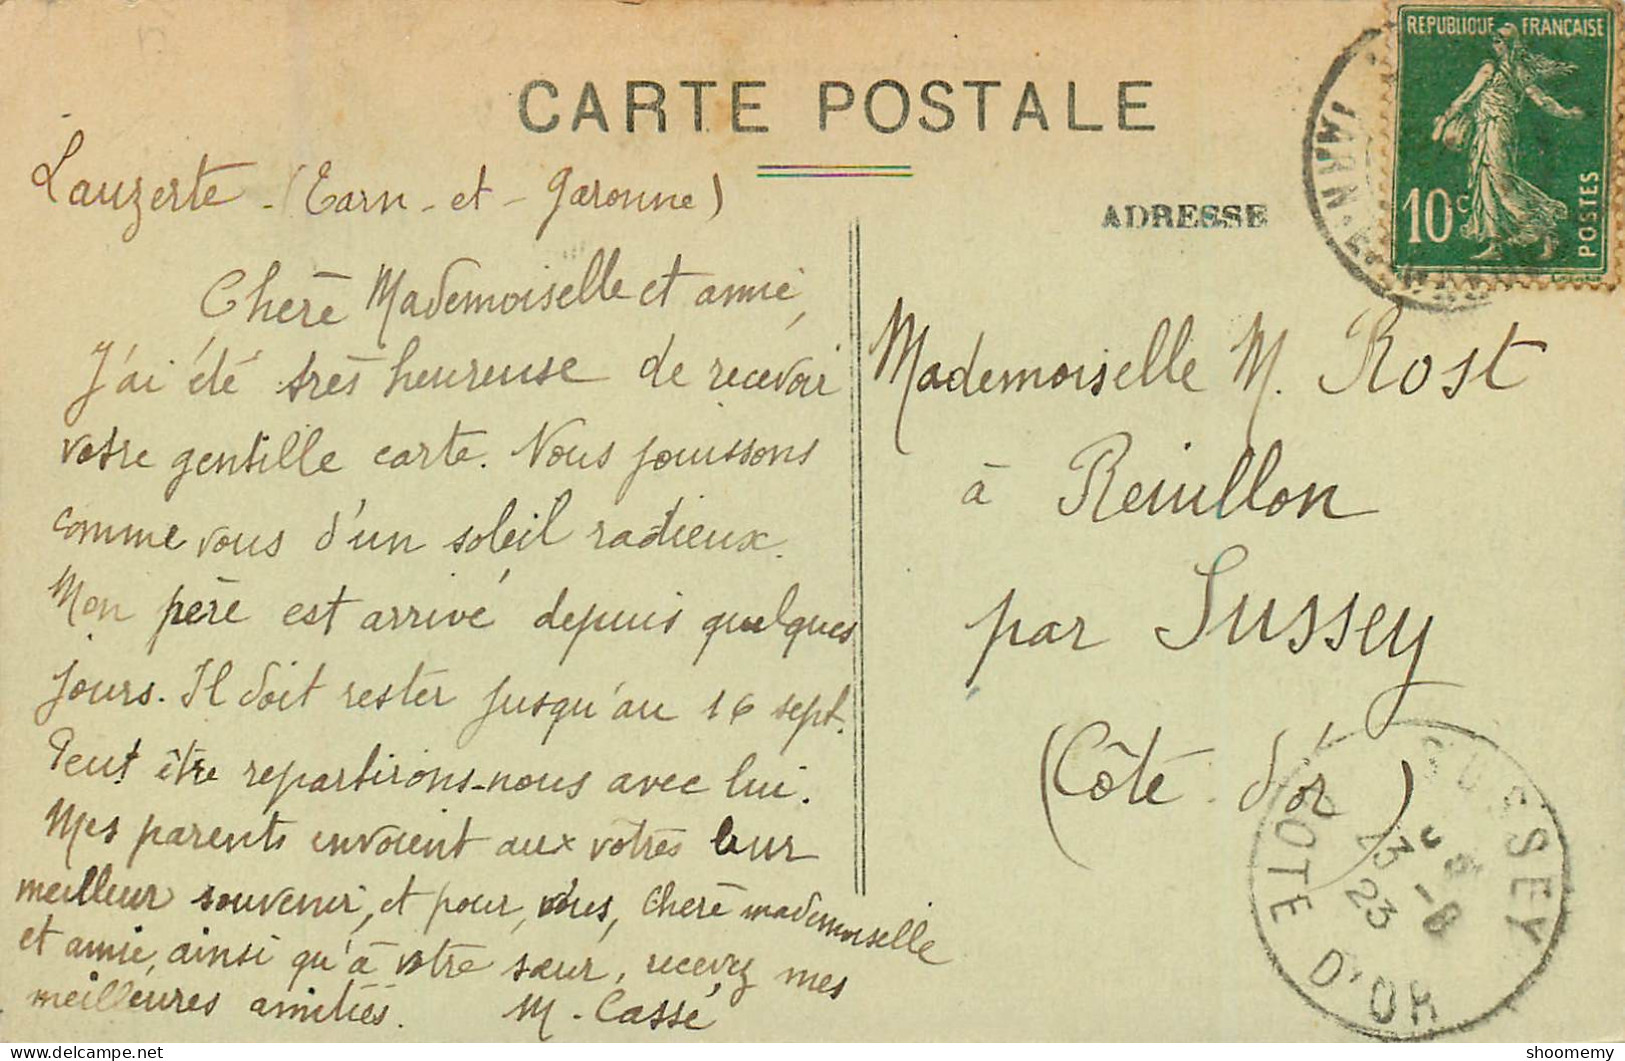 CARTE POSTALE
ADRESSE
REPUBLIQUE FRANÇAISE
10c
POSTES
Lauzerte - (Tarn - et - Garonne)
Chère Mademoiselle et amie,
J'ai été très heureuse de recevoir
votre gentille carte. Nous jouissons
comme vous d'un soleil radieux.
Mon père est arrivé depuis quelques
jours. Il doit rester jusqu'au 16 sept.
Peut être repartirons-nous avec lui.
Mes parents envoient aux vôtres leur
meilleur souvenir, et pour, vous, chère mademoiselle
et amie, ainsi qu'à votre sœur, recevez mes
meilleures amitiés. M. Cassé
Mademoiselle M. Rost
à Reuillon
par Sussey
(Côte d'or)
SUSSEY
23 -8
23
COTE D'OR
shoomemy